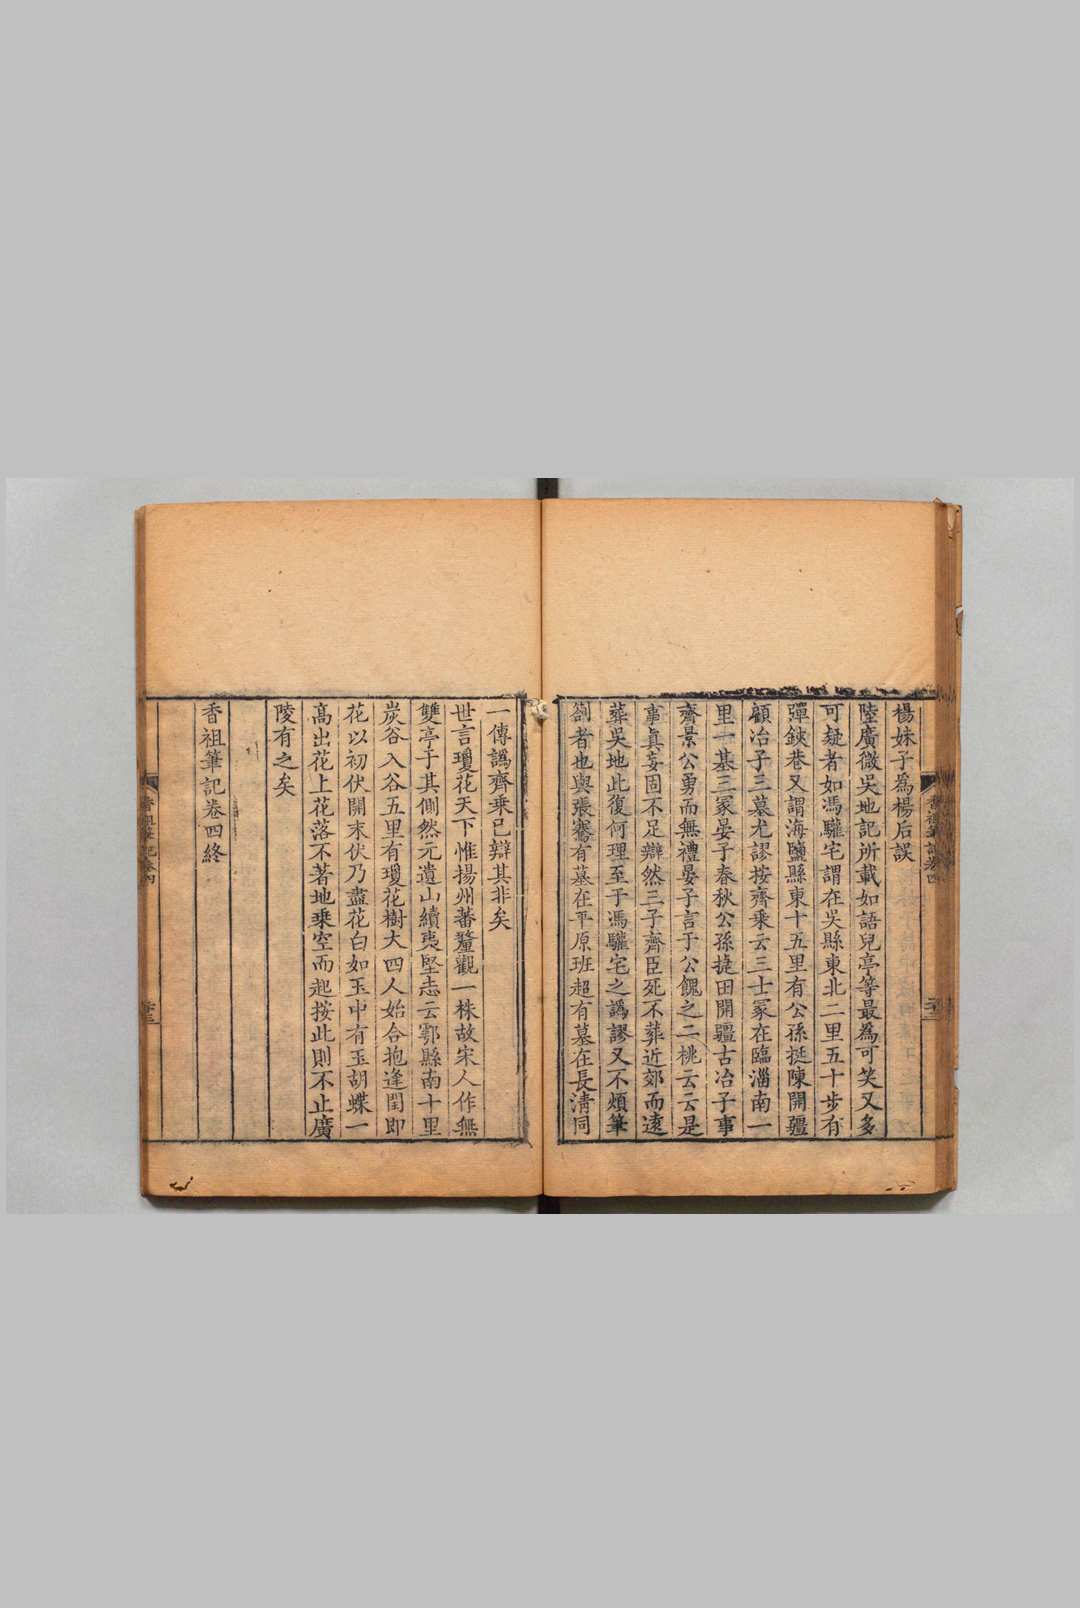 楊妹子爲楊后誤
陸廣微吳地記所載如語兒亭等最爲可笑又多
可疑者如馮驩宅謂在吳縣東北二里五十步有
彈鋏巷又謂海鹽縣東十五里有公孫挺陳開疆
顧冶子三墓尤謬按齊乘云三士冢在臨淄南一
里一基三冢晏子春秋公孫捷田開疆古冶子事
齊景公勇而無禮晏子言于公餽之二桃云云是
事眞妄固不足辯然三子齊臣死不葬近郊而遠
葬吳地此復何理至于馮驩宅之譌謬又不煩筆
劄者也與張騫有墓在平原班超有墓在長淸同
一傳譌齊乘已辯其非矣
世言瓊花天下惟揚州蕃釐觀一株故宋人作無
雙亭于其側然元遺山續夷堅志云鄠縣南十里
炭谷入谷五里有瓊花樹大四人始合抱逢閏卽
花以初伏開末伏乃盡花白如玉中有玉胡蝶一
高出花上花落不著地乘空而起按此則不止廣
陵有之矣
香祖筆記卷四終
香祖筆記卷四